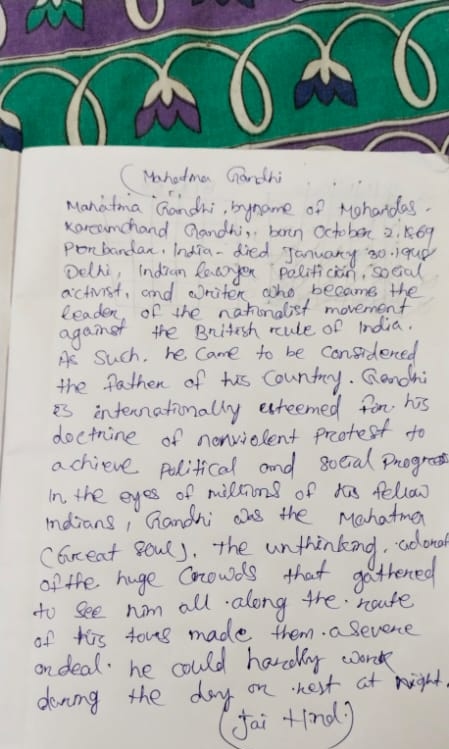 (Mahatma Gandhi
Mahatma Gandhi, byname of Mohandas
Karamchand Gandhi, born October 2, 1869
Porbandar, India - died January 30, 1948
Delhi, Indian lawyer politician, social
activist, and writer who became the
leader of the nationalist movement
against the British rule of India.
As Such. he came to be considered
the father of his Country. Gandhi
is internationally esteemed for his
doctrine of nonviolent protest to
achieve political and social progress
In the eyes of millions of his fellow
Indians, Gandhi was the Mahatma
(Great soul). The unthinking, adorat
of the huge crowds that gathered
to see him all along the route
of his tours made them a severe
ordeal. he could hardly work
during the day or rest at night.
(Jai Hind.)